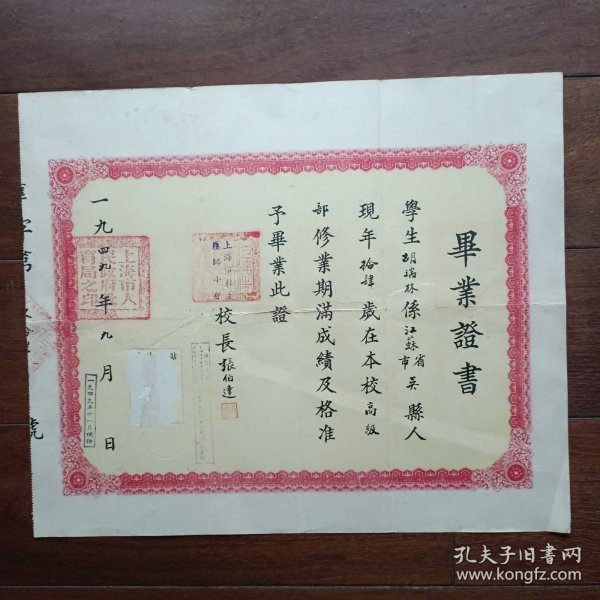 畢業證書
學生胡瑞林係江蘇省市吳縣人
現年拾肆歲在本校高級
部修業期滿成績及格准
予畢業此證
上海市
小學
校長張伯達
一九四九年九月日
上海市人
民政府教
育局之印
貼
一九四九年十一月補印
號
孔夫子旧书网
www.kongfz.com